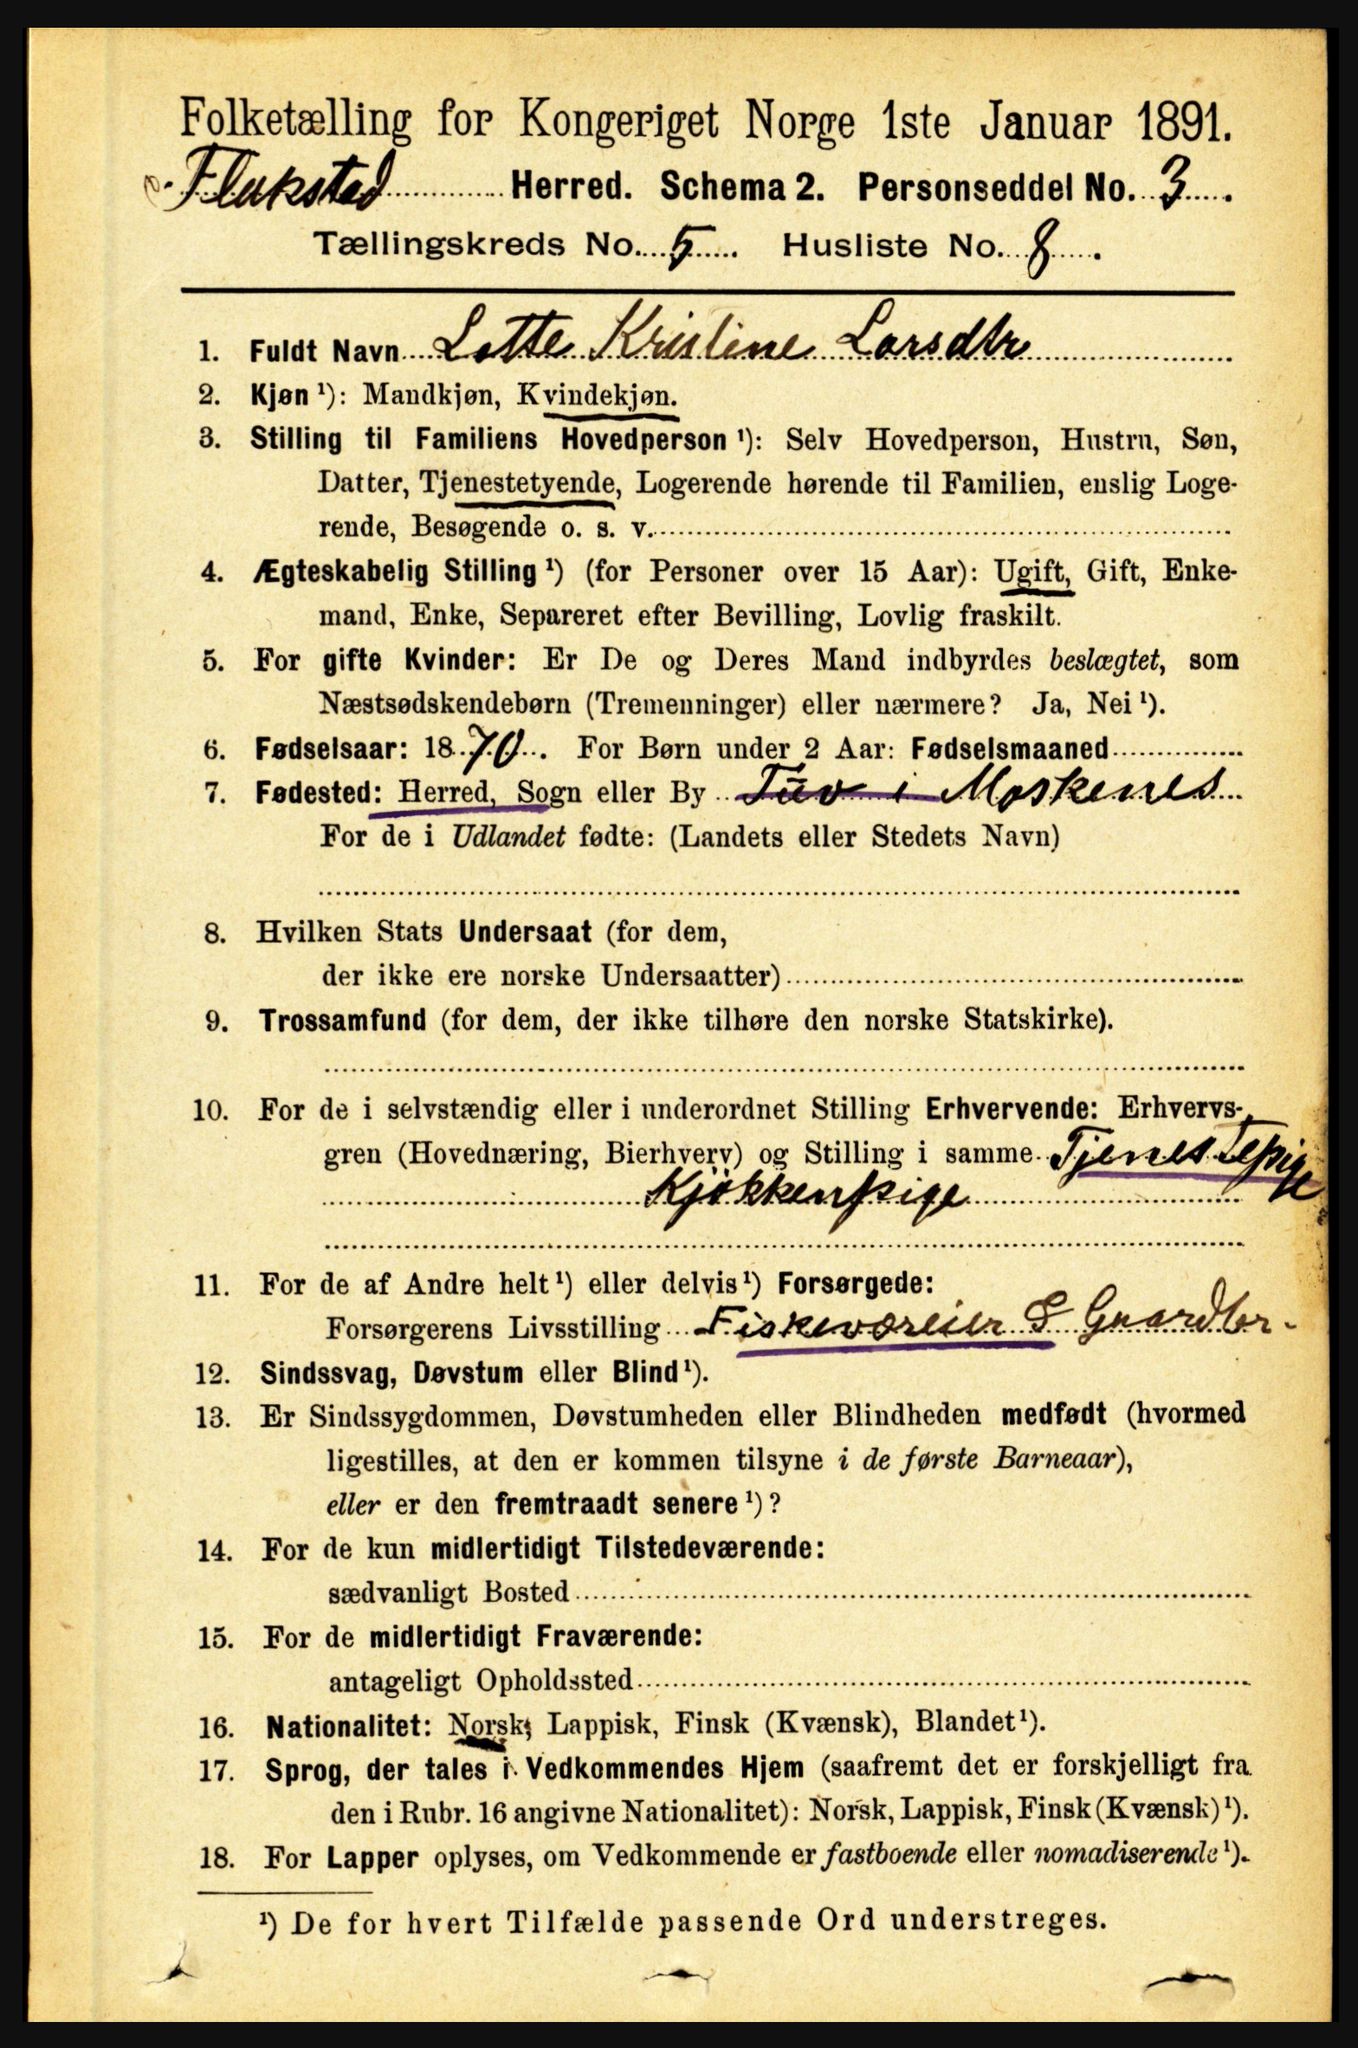 Folketælling for Kongeriget Norge 1ste Januar 1891.
Flakstad Herred. Schema 2. Personseddel No. 3.
Tællingskreds No. 5. Husliste No. 8.
1. Fuldt Navn Lotte Kristine Larsdtr
2. Kjøn ¹): Mandkjøn, Kvindekjøn.
3. Stilling til Familiens Hovedperson ¹): Selv Hovedperson, Hustru, Søn,
Datter, Tjenestetyende, Logerende hørende til Familien, enslig Loge-
rende, Besøgende o. s. v.
4. Ægteskabelig Stilling ¹) (for Personer over 15 Aar): Ugift, Gift, Enke-
mand, Enke, Separeret efter Bevilling, Lovlig fraskilt.
5. For gifte Kvinder: Er De og Deres Mand indbyrdes beslægtet, som
Næstsødskendebørn (Tremenninger) eller nærmere? Ja, Nei ¹).
6. Fødselsaar: 1870. For Børn under 2 Aar: Fødselsmaaned
7. Fødested: Herred, Sogn eller By Tuv i Moskenes
For de i Udlandet fødte: (Landets eller Stedets Navn)
8. Hvilken Stats Undersaat (for dem,
der ikke ere norske Undersaatter)
9. Trossamfund (for dem, der ikke tilhøre den norske Statskirke).
10. For de i selvstændig eller i underordnet Stilling Erhvervende: Erhvervs-
gren (Hovednæring, Bierhverv) og Stilling i samme Tjenestepige
Kjøkkenpige
11. For de af Andre helt ¹) eller delvis ¹) Forsørgede:
Forsørgerens Livsstilling Fiskeværeier
12. Sindssvag, Døvstum eller Blind ¹).
13. Er Sindssygdommen, Døvstumheden eller Blindheden medfødt (hvormed
ligestilles, at den er kommen tilsyne i de første Barneaar),
eller er den fremtraadt senere ¹)?
14. For de kun midlertidigt Tilstedeværende:
sædvanligt Bosted
15. For de midlertidigt Fraværende:
antageligt Opholdssted
16. Nationalitet: Norsk, Lappisk, Finsk (Kvænsk), Blandet ¹).
17. Sprog, der tales i Vedkommendes Hjem (saafremt det er forskjelligt fra
den i Rubr. 16 angivne Nationalitet): Norsk, Lappisk, Finsk (Kvænsk) ¹).
18. For Lapper oplyses, om Vedkommende er fastboende eller nomadiserende ¹).
¹) De for hvert Tilfælde passende Ord understreges.